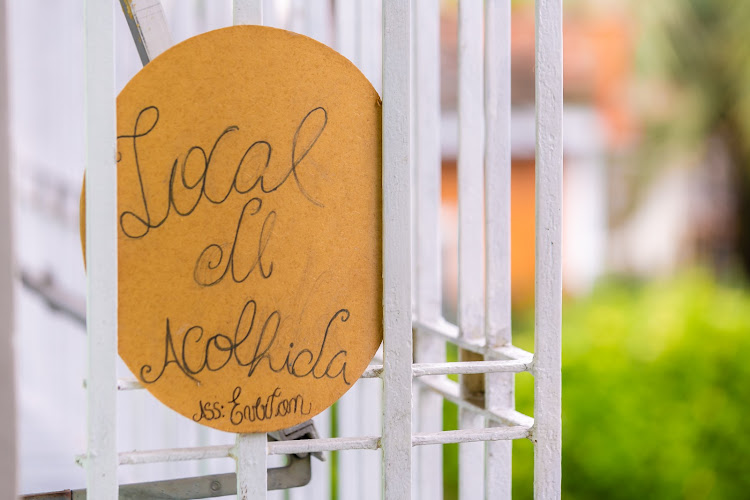 Local
de
Acolhida
Ass: